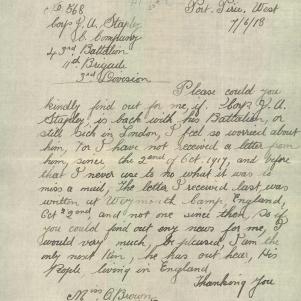 No 568
Port Pirie, West
7/6/18
Corp J. A. Stapley
C Company
43rd Battalion
11th Brigade
3rd Division
Please could you
kindly find out for me, if Corp J. A.
Stapley, is back with his Battalion, or
still sick in London, I feel so worried about
him, For I have not received a letter from
him, since the 22nd of Oct. 1917, and before
that I never use to no what it was to
miss a mail, The letter I received last, was
written at Weymouth Camp, England,
Oct 22nd, and not one since then, so if
you could find out any news for me, I
would very much, be pleased, I am the
only next Kin, he has out hear, His
People living in England
Thanking You
Miss C. Brown